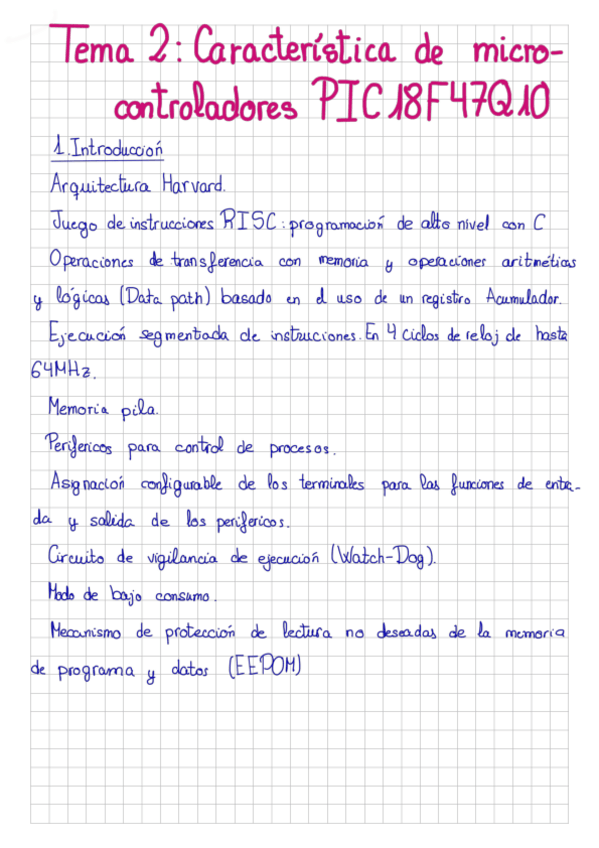 Tema 2: Característica de micro-
controladores PIC18F47Q10
1. Introducción
Arquitectura Harvard.
Juego de instrucciones RISC: programación de alto nivel con C
Operaciones de transferencia con memoria y operaciones aritméticas
y lógicas (Data path) basado en el uso de un registro Acumulador.
Ejecución segmentada de instruciones. En 4 ciclos de reloj de hasta
64MHz.
Memoria pila.
Perifericos para control de procesos.
Asignación configurable de los terminales para las funciones de entra-
da y salida de los perifericos.
Circuito de vigilancia de ejecución (Watch-Dog).
Modo de bajo consumo.
Mecanismo de protección de lectura no deseadas de la memoria
de programa y datos (EEPOM)